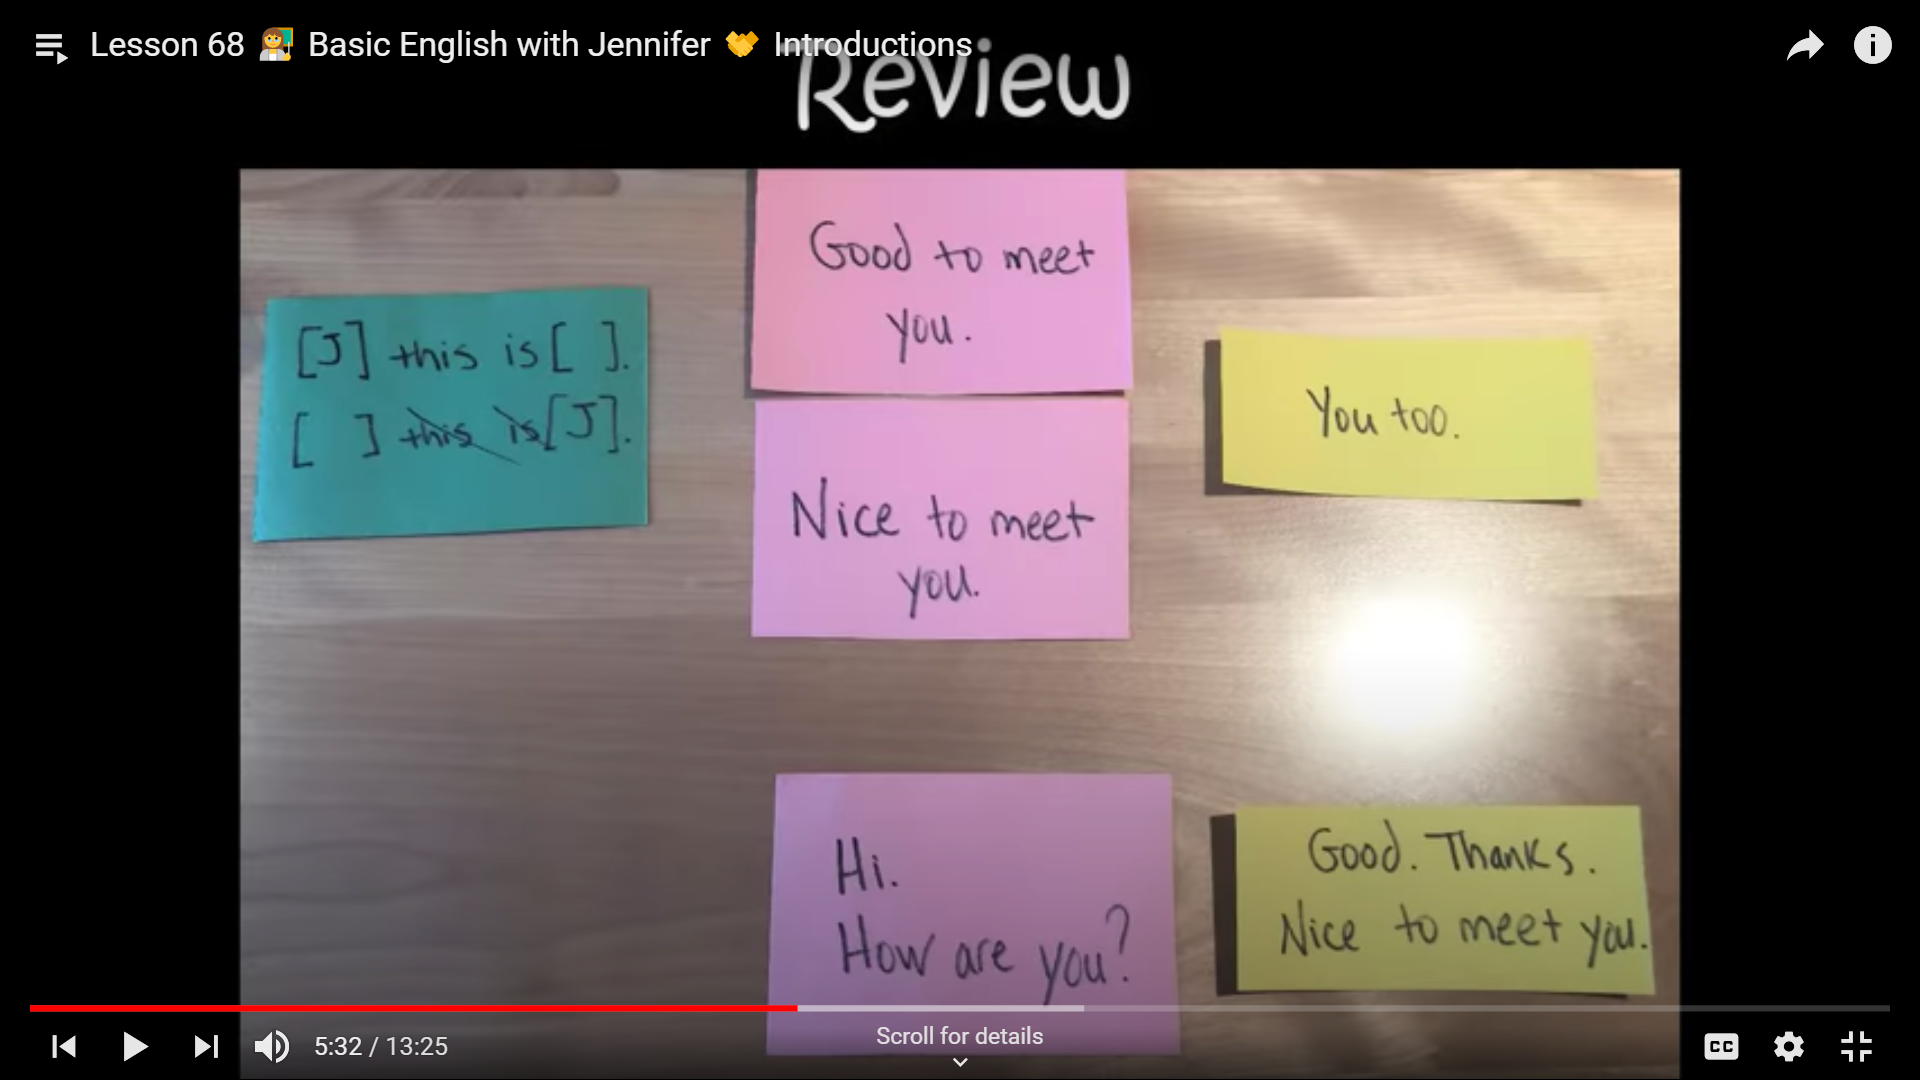 Lesson 68 👩‍🏫 Basic English with Jennifer 🤝 Introductions
Review
[J] this is [ ].
[ ] this is [J].
Good to meet
you.
Nice to meet
you.
You too.
Hi.
How are you?
Good. Thanks.
Nice to meet you.
Scroll for details
5:32 / 13:25
CC